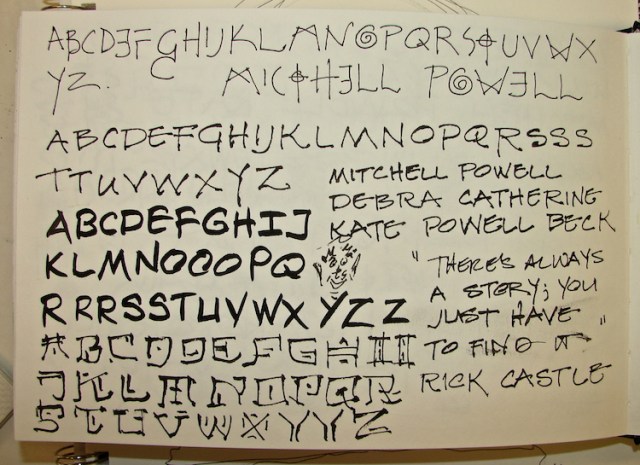 ABCDEFGHIJKLMNOPQRSTUVWX
YZ. MITCHELL POWELL
ABCDEFGHIJKLMNOPQRSSS
TTUVWXYZ
MITCHELL POWELL
DEBRA CATHERINE
KATE POWELL BECK
ABCDEFGHIJ
KLMNOOOPQ
RRRSSTUVWXYZZZ
"THERE'S ALWAYS
A STORY; YOU
JUST HAVE
TO FIND IT"
RICK CASTLE
ABCDDEFGHII
JKLLMNOPQR
STUVWXYYZ